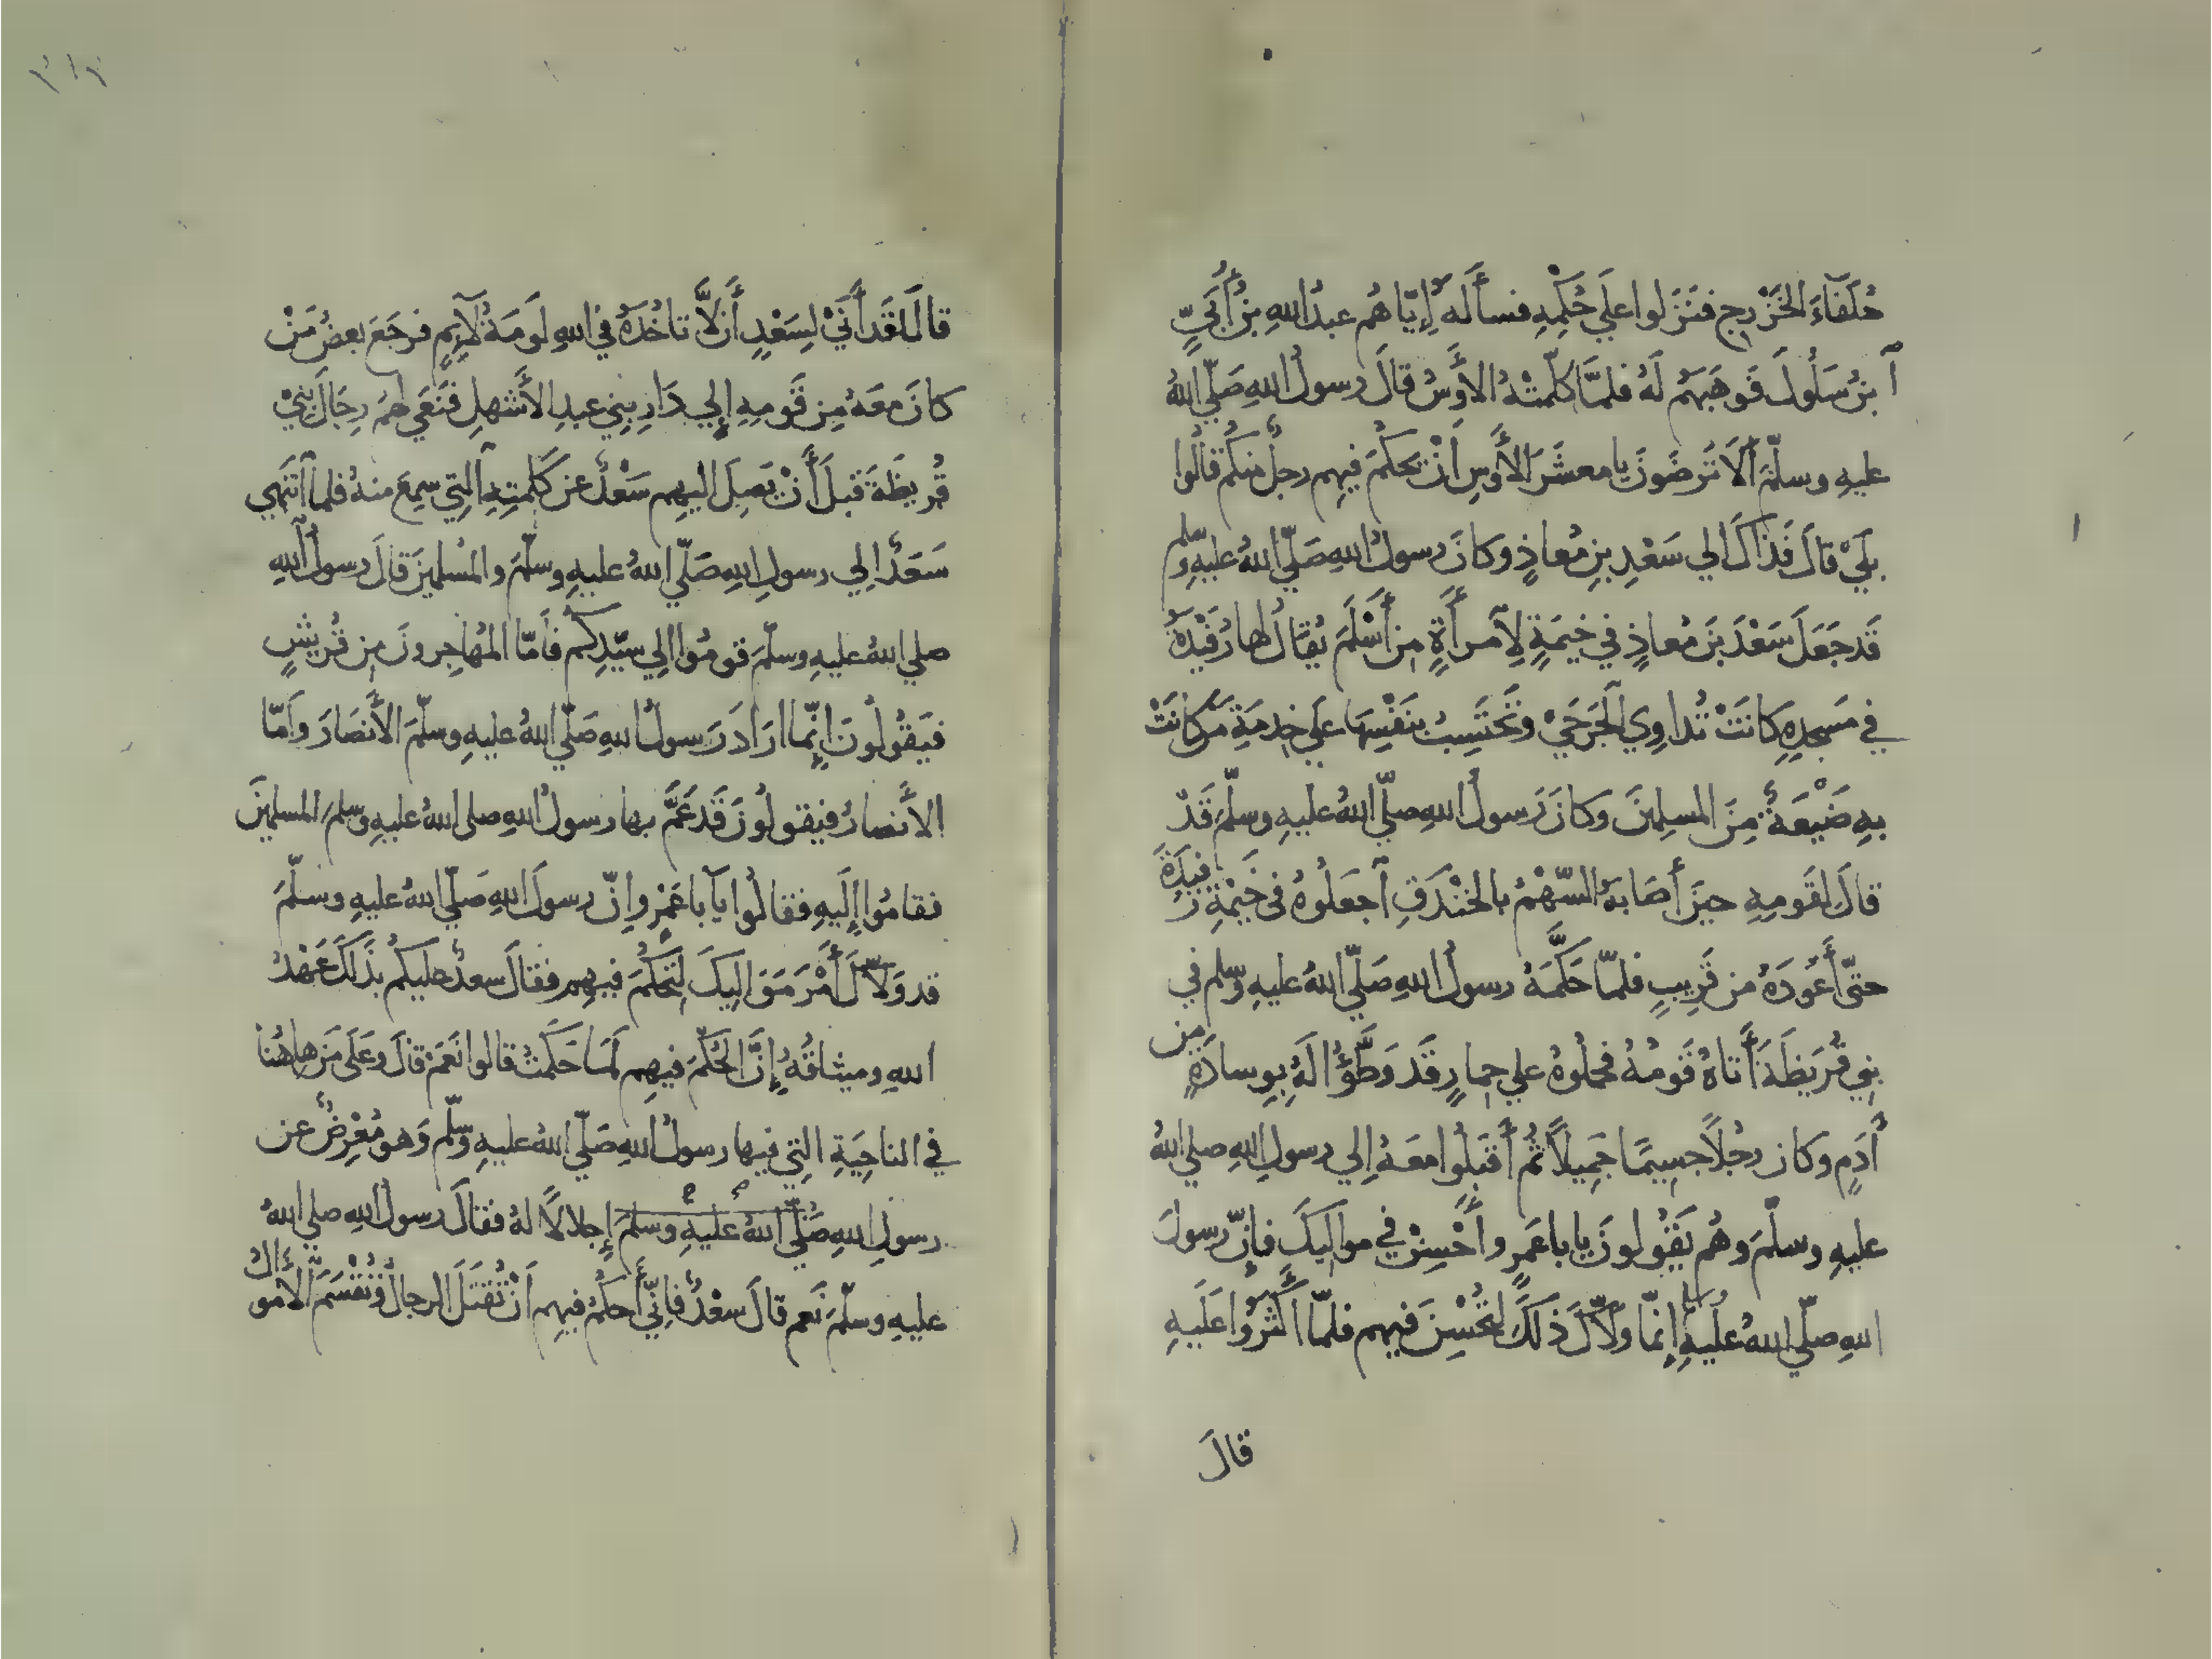 حُلَفَاءَ الخَزْرجِ فنَزَلوا علَي حُكْمِهِ فسأَله إِيّاهُم عبدُ اللهِ بنُ أُبَيٍّ
ابنُ سَلُولَ فَوَهَبَهُم لَهُ فلمَّا كلّمتْهُ الأَوسُ قالَ رسولُ اللهِ صَلّي اللهُ
عليهِ وسلّمَ ألاَ تَرضَونَ يا معشَرَ الأَوسِ أنْ يَحكُمَ فيهِم رجلٌ منكُم قالُوا
بلَيْ قالَ فَذَاكَ الي سَعْدِ بنِ مُعاذٍ وكانَ رسولُ اللهِ صَلّي اللهُ عليهِ وسلم
قَد جَعَلَ سَعْدَ بنَ مُعاذٍ في خيمَةٍ لِامرأَةٍ مِن أَسْلَمَ يُقَالُ لها رُفَيْدَةُ
في مَسجدِهِ كانَتْ تُداوِي الجَرحَيْ وتَحتَسِبُ بنَفْسِهَا علَي خِدمَةِ مَن كانَتْ
بهِ ضَيْعَةٌ مِنَ المسلِمينَ وكانَ رَسولُ اللهِ صلّي اللهُ عليهِ وسلّمَ قَدْ
قالَ لقَومِهِ حينَ أَصَابَهُ السّهْمُ بالخَنْدَقِ اجعَلُوهُ في خَيْمَةِ رُفَيدَةَ
حتّى أَعُودَهُ من قَرِيبٍ فلمّا حَكَّمَهُ رسولُ اللهِ صَلّي اللهُ عليهِ وسلم في
بني قُرَيظَةَ أَتاهُ قَومُهُ فحملُوهُ علي حِمارٍ قَد وَطَّؤُا لَهُ بِوِسادَةٍ مِن
أَدَمٍ وكان رجُلاً جَسِيمًا جَمِيلاً ثُم أَقبَلُوا معَهُ إِلي رسولِ اللهِ صلي اللهُ
عليهِ وسلّمَ وهُم يَقُولونَ يا با عَمرٍو أَحْسِنْ في مواليكَ فإِنّ رسولَ
اللهِ صلّي اللهُ عليهِ وسلم إِنّما ولاّكَ ذَلكَ لتُحْسِنَ فيهم فلمّا أَكثَرُوا عَلَيهِ
قالَ
قالَ لقَد أَنَيْ لسَعْدٍ أَن لاَّ تاخُذَهُ في اللهِ لَومَةُ لآيِمٍ فرجَعَ بعضُ مَنْ
كانَ معَهُ مِن قَومِهِ إلي دَارِ بني عبدِ الأَشهلِ فنَعَي لهم رِجَالَ بَنِيْ
قُريظَةَ قبلَ أَنْ يَصِلَ اليهِم سَعْدٌ عن كَلمتِهِ التي سمِعَ منهُ فلما انتَهي
سَعْدٌ الِي رسولِ اللهِ صَلّي اللهُ عليهِ وسلّمَ والمُسْلمينَ قالَ رسولُ اللهِ
صلي اللهُ عليهِ وسلّمَ قومُوا الِي سيّدِكُم فأَمّا المُهاجِرونَ مِن قُريشٍ
فيَقُولُونَ إِنّما ارَادَ رَسولُ اللهِ صَلّي اللهُ عليهِ وسلّمَ الأَنصَارَ وأَمّا
الأَنصارُ فيقولُونَ قَد عَمَّ بها رسولُ اللهِ صلى اللهُ عليهِ وسلمَ المسلمينَ
فقامُوا إِلَيهِ فقالُوا يا با عَمْرٍو إِنّ رسولَ اللهِ صَلّي اللهُ عليهِ وسلّمَ
قد وَلاّكَ أَمْرَ مَوَاليكَ لتَحكُمَ فيهِم فقالَ سعدٌ عليكُم بذَلكَ عَهْدُ
اللهِ وميثاقُهُ إِنَّ الحُكْمَ فيهِم لَمَا حَكَمْتُ قالوا نَعَمْ قالَ وعَلَى مَن هاهُنا
في الناحِيَةِ التِي فيها رسولُ اللهِ صَلّي اللهُ عليهِ وسلّم وَهو مُعْرِضٌ عن
رسولِ اللهِ صَلّي اللهُ عليهِ وسلّمَ إِجلالاً لهُ فقالَ رسولُ اللهِ صلي اللهُ
عليهِ وسلّمَ نَعم قالَ سعْدٌ فإِنّي أَحكُمُ فيهِم أنْ تُقتَلَ الرجالُ وتُقْسَمَ الأَموالُ